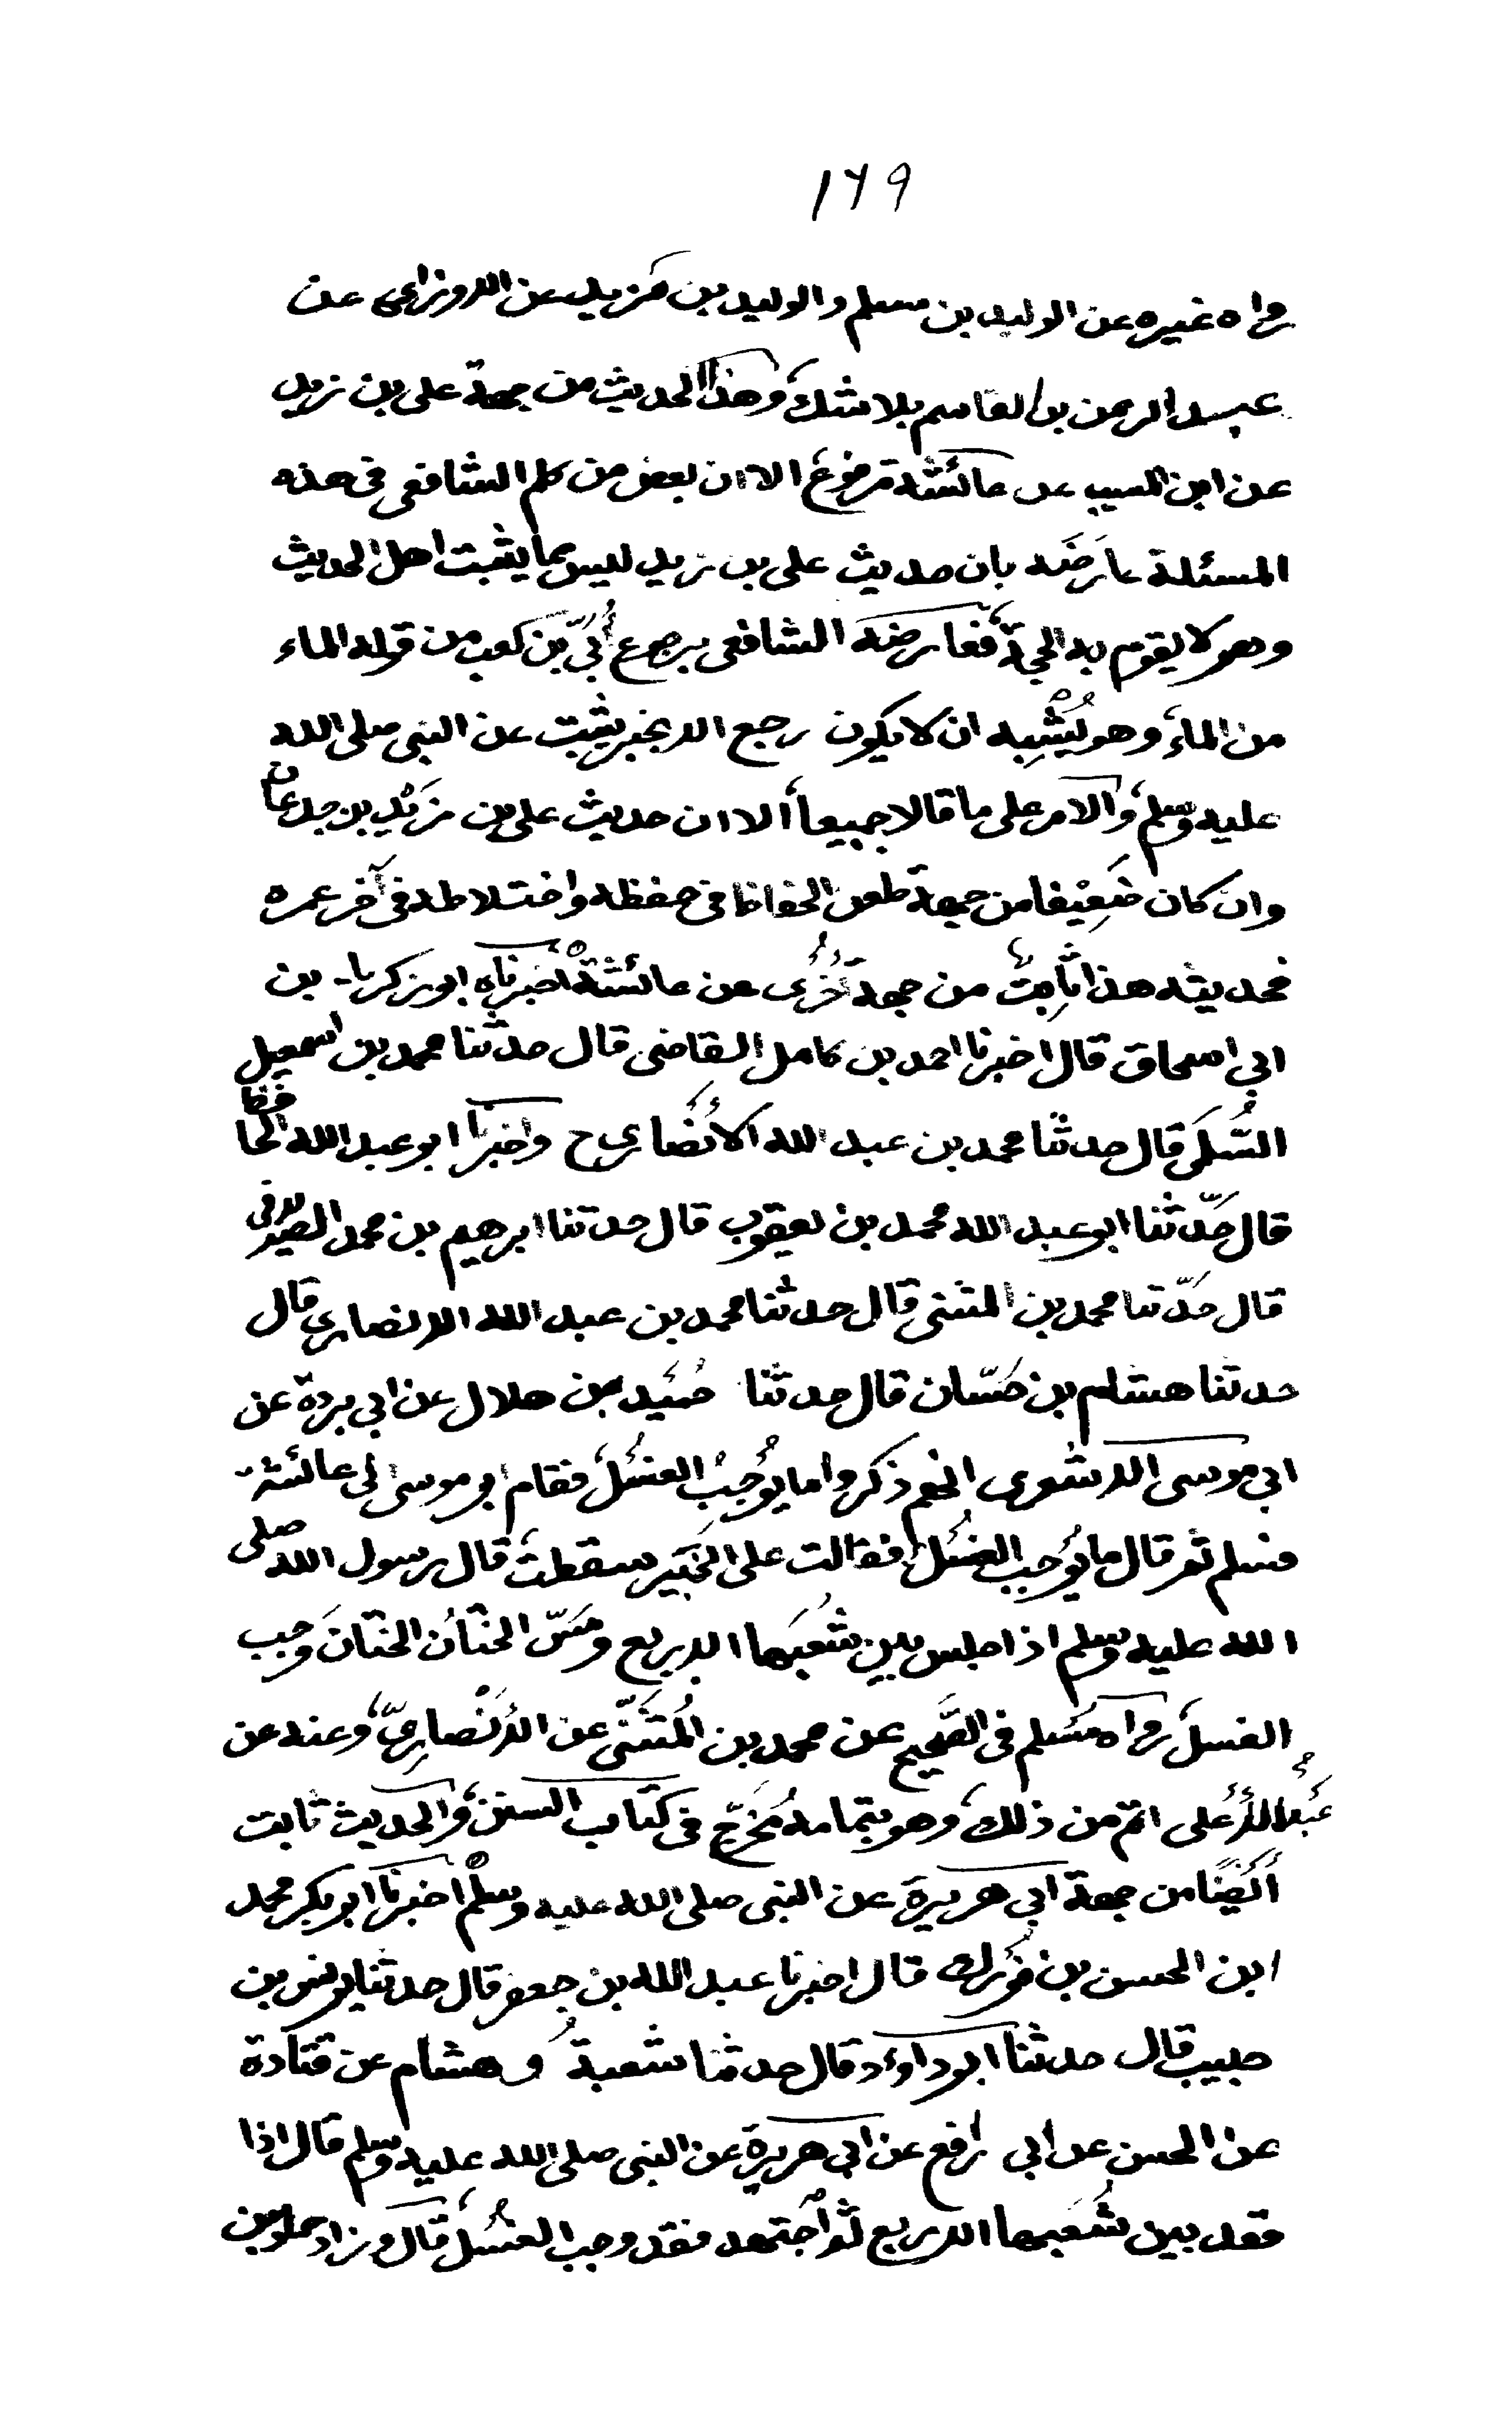 ١٦٩
رواه غيره عن الوليد بن مسلم والوليد بن مَزيد عن الاوزاعي عن
عبد الرحمن بن القاسم بلا شك، وهذا الحديث من جهة علي بن زيد
عن ابن المسيب عن عائشة مرفوع، الا ان بعض من كلم الشافعي في هذه
المسئلة عارَضَه بان حديث علي بن زيد ليس مما يثبت اهل الحديث
وهو لا يقوم به الحجة، فعارضه الشافعي برجوع اُبَيّ بن كعب من قوله الماء
من الماء، وهو يُشْبِه ان لا يكون رجع الا بخبر يثبت عن النبي صلى الله
عليه وسلم، والامر على ما قالا جميعا، الا ان حديث علي بن زَيْد بن جدعان
وان كان ضَعِيْفا من جهة طعن الحفاظ في حفظه واختلاطه في آخر عمره
فحديثه هذا ثابِتٌ من جهة اُخْرٰى عن عائشة ْاخبرناه ابو زكريا بن
ابي اسحاق قال اخبرنا احمد بن كامل القاضي قال حدثنا محمد بن اسمعيل
السُّلَمي قال حدثنا محمد بن عبد الله الاَنْصَاري ح واخبرنا ابو عبد الله الحافظ
قال حَدّثنا ابو عبد الله محمد بن يعقوب قال حدثنا ابرهيم بن محمد الصيدلاني
قال حَدّثنا محمد بن المثنى قال حدثنا محمد بن عبد الله الانصاري قال
حدثنا هشام بن حَسّان قال حدثنا حُمَيد بن هلال عن ابي بردة عن
ابي موسى الاشعرى انهم ذكروا ما يُوْجِبُ الغسُلَ، فقام ابو موسى الى عائشة
فسلم ثم قال ما يُوْجب الغسُلَ، فقالت على الخَبِير سقطت، قال رسول الله صلى
الله عليه وسلم اذا جلس بين شُعَبِها الاربع ومَسّ الختانُ الختانَ وَجب
الغسل، رواه مُسَلم في الصَّحيح عن محمد بن المُثَنّى عن الاَنْصارِيّ، وعنه عن
عَبْد الاَعْلى اتم من ذلك، وهو بتمامه مُخَرّج في كتاب السنن، والحديث ثابت
اَيْضًا من جهة ابي هريرة عن النبي صلى الله عليه وسلم ْاخبرنا ابو بكر محمد
ابن الحسن بن فُوْرك قال اخبرنا عبد الله بن جعفر قال حدثنا يونس بن
حبيب قال حدثنا ابو داؤد قال حدثنا شعبةُ و هشام عن قتادة
عن الحسن عن ابي رافع عن ابي هريرة عن النبي صلى الله عليه وسلم قال اذا
قعد بين شُعَبِها الاربع ثم اجْتهد فقد وجب الغسُل، قال وزاد حماد بن